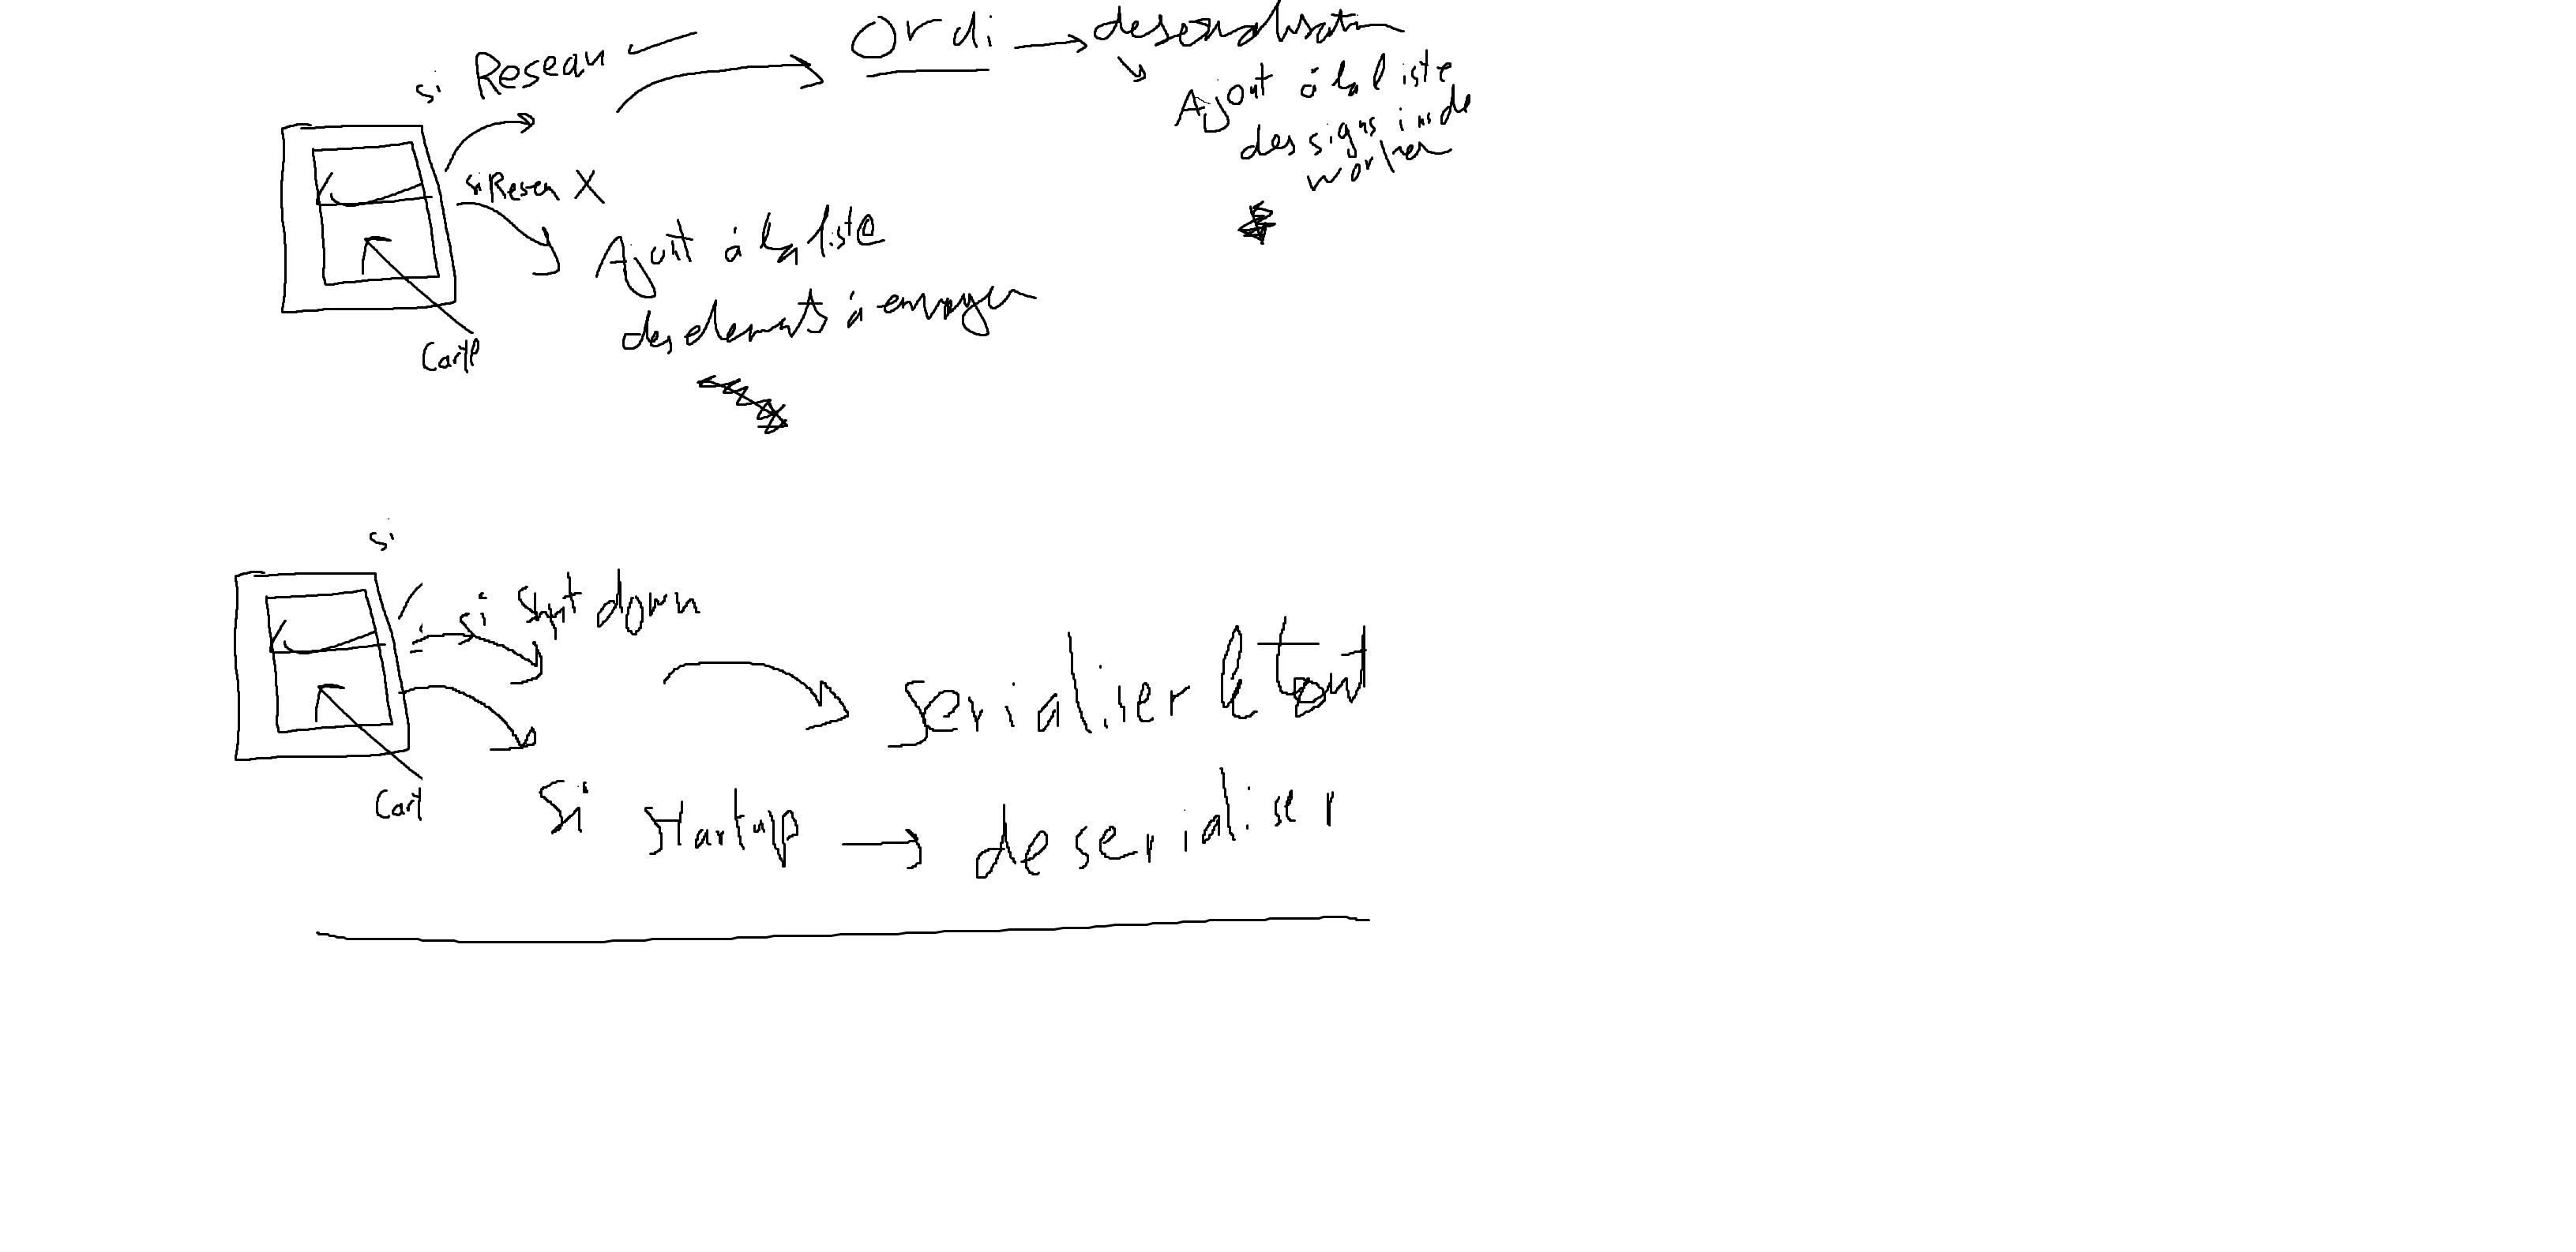 si Reseau
Ordi
deserialisation
Ajout à la liste
des sign ins de
worker
si Resea X
Ajout à la liste
des elements à envoyer
Carte
si
si Shut down
serialiser le tout
Cart
Si startup
deserialiser